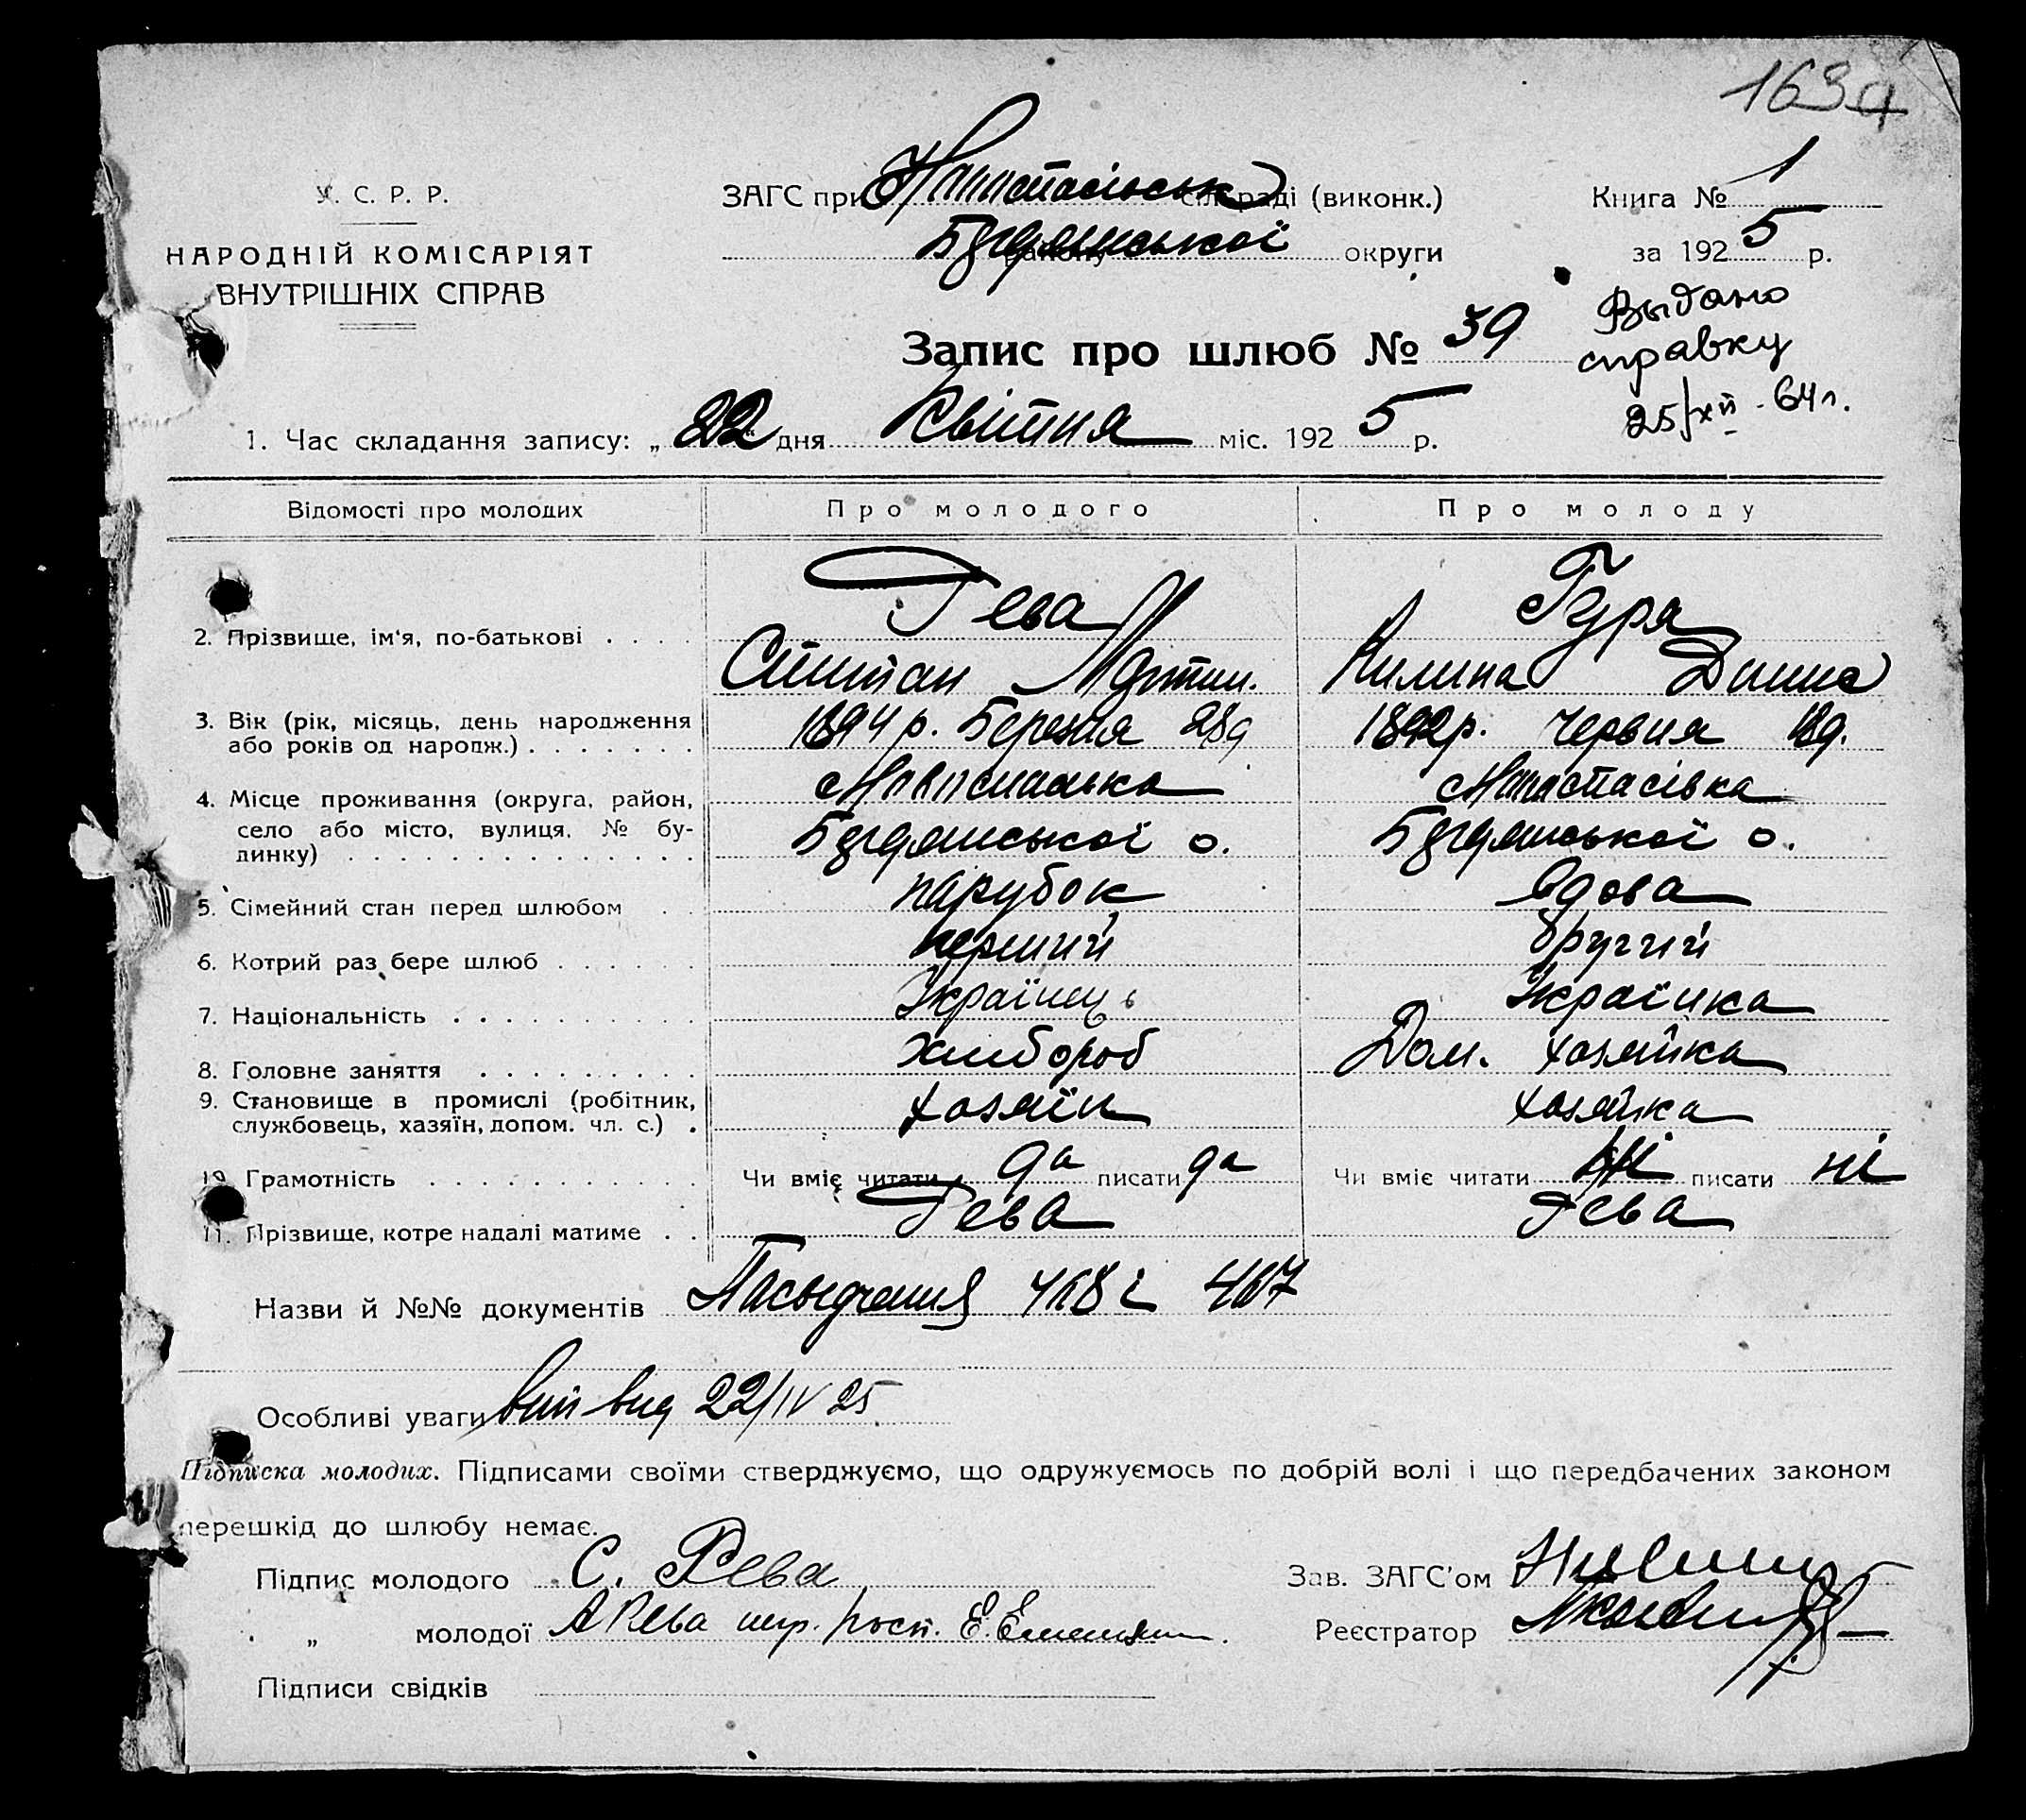 163
У. С. Р. Р.
НАРОДНІЙ КОМІСАРІЯТ
ВНУТРІШНІХ СПРАВ
ЗАГС при сільраді (виконк.)
району округи
Книга № 1
за 1925 р.
Запис про шлюб № 39
Выдано
справку
25/XII-64 г.
1. Час складання запису: „22“ дня Квітня міс. 1925 р.
Відомості про молодих Про молодого Про молоду
2. Прізвище, ім'я, по-батькові . . . . Рева Гура
Степан Мартин. Килина Дении
3. Вік (рік, місяць, день народження 1894 р. Березня 28 д 1892 р. Червня 18 д.
або років од народж.) . . . . . . .
4. Місце проживання (округа, район, Манастасівка
село або місто, вулиця, № бу-
динку) . . . . . . . . . . . . . . о. о.
5. Сімейний стан перед шлюбом . . парубок вдова
6. Котрий раз бере шлюб . . . . . . перший другий
7. Національність . . . . . . . . . . Українець Українка
8. Головне заняття . . . . . . . . . Хлибороб Дом. хозяйка
9. Становище в промислі (робітник, хозяїн хозяйка
службовець, хазяїн, допом. чл. с.) .
10. Грамотність . . . . . . . . . . . Чи вміє читати да писати да Чи вміє читати ні писати ні
11. Прізвище, котре надалі матиме . . Рева Рева
Назви й №№ документів 468 і 467
Особливі уваги вип вид 22/IV 25
Підписка молодих. Підписами своїми стверджуємо, що одружуємось по добрій волі і що передбачених законом
перешкід до шлюбу немає.
Підпис молодого С. Рева Зав. ЗАГС'ом
„ молодої А Рева Реєстратор
Підписи свідків